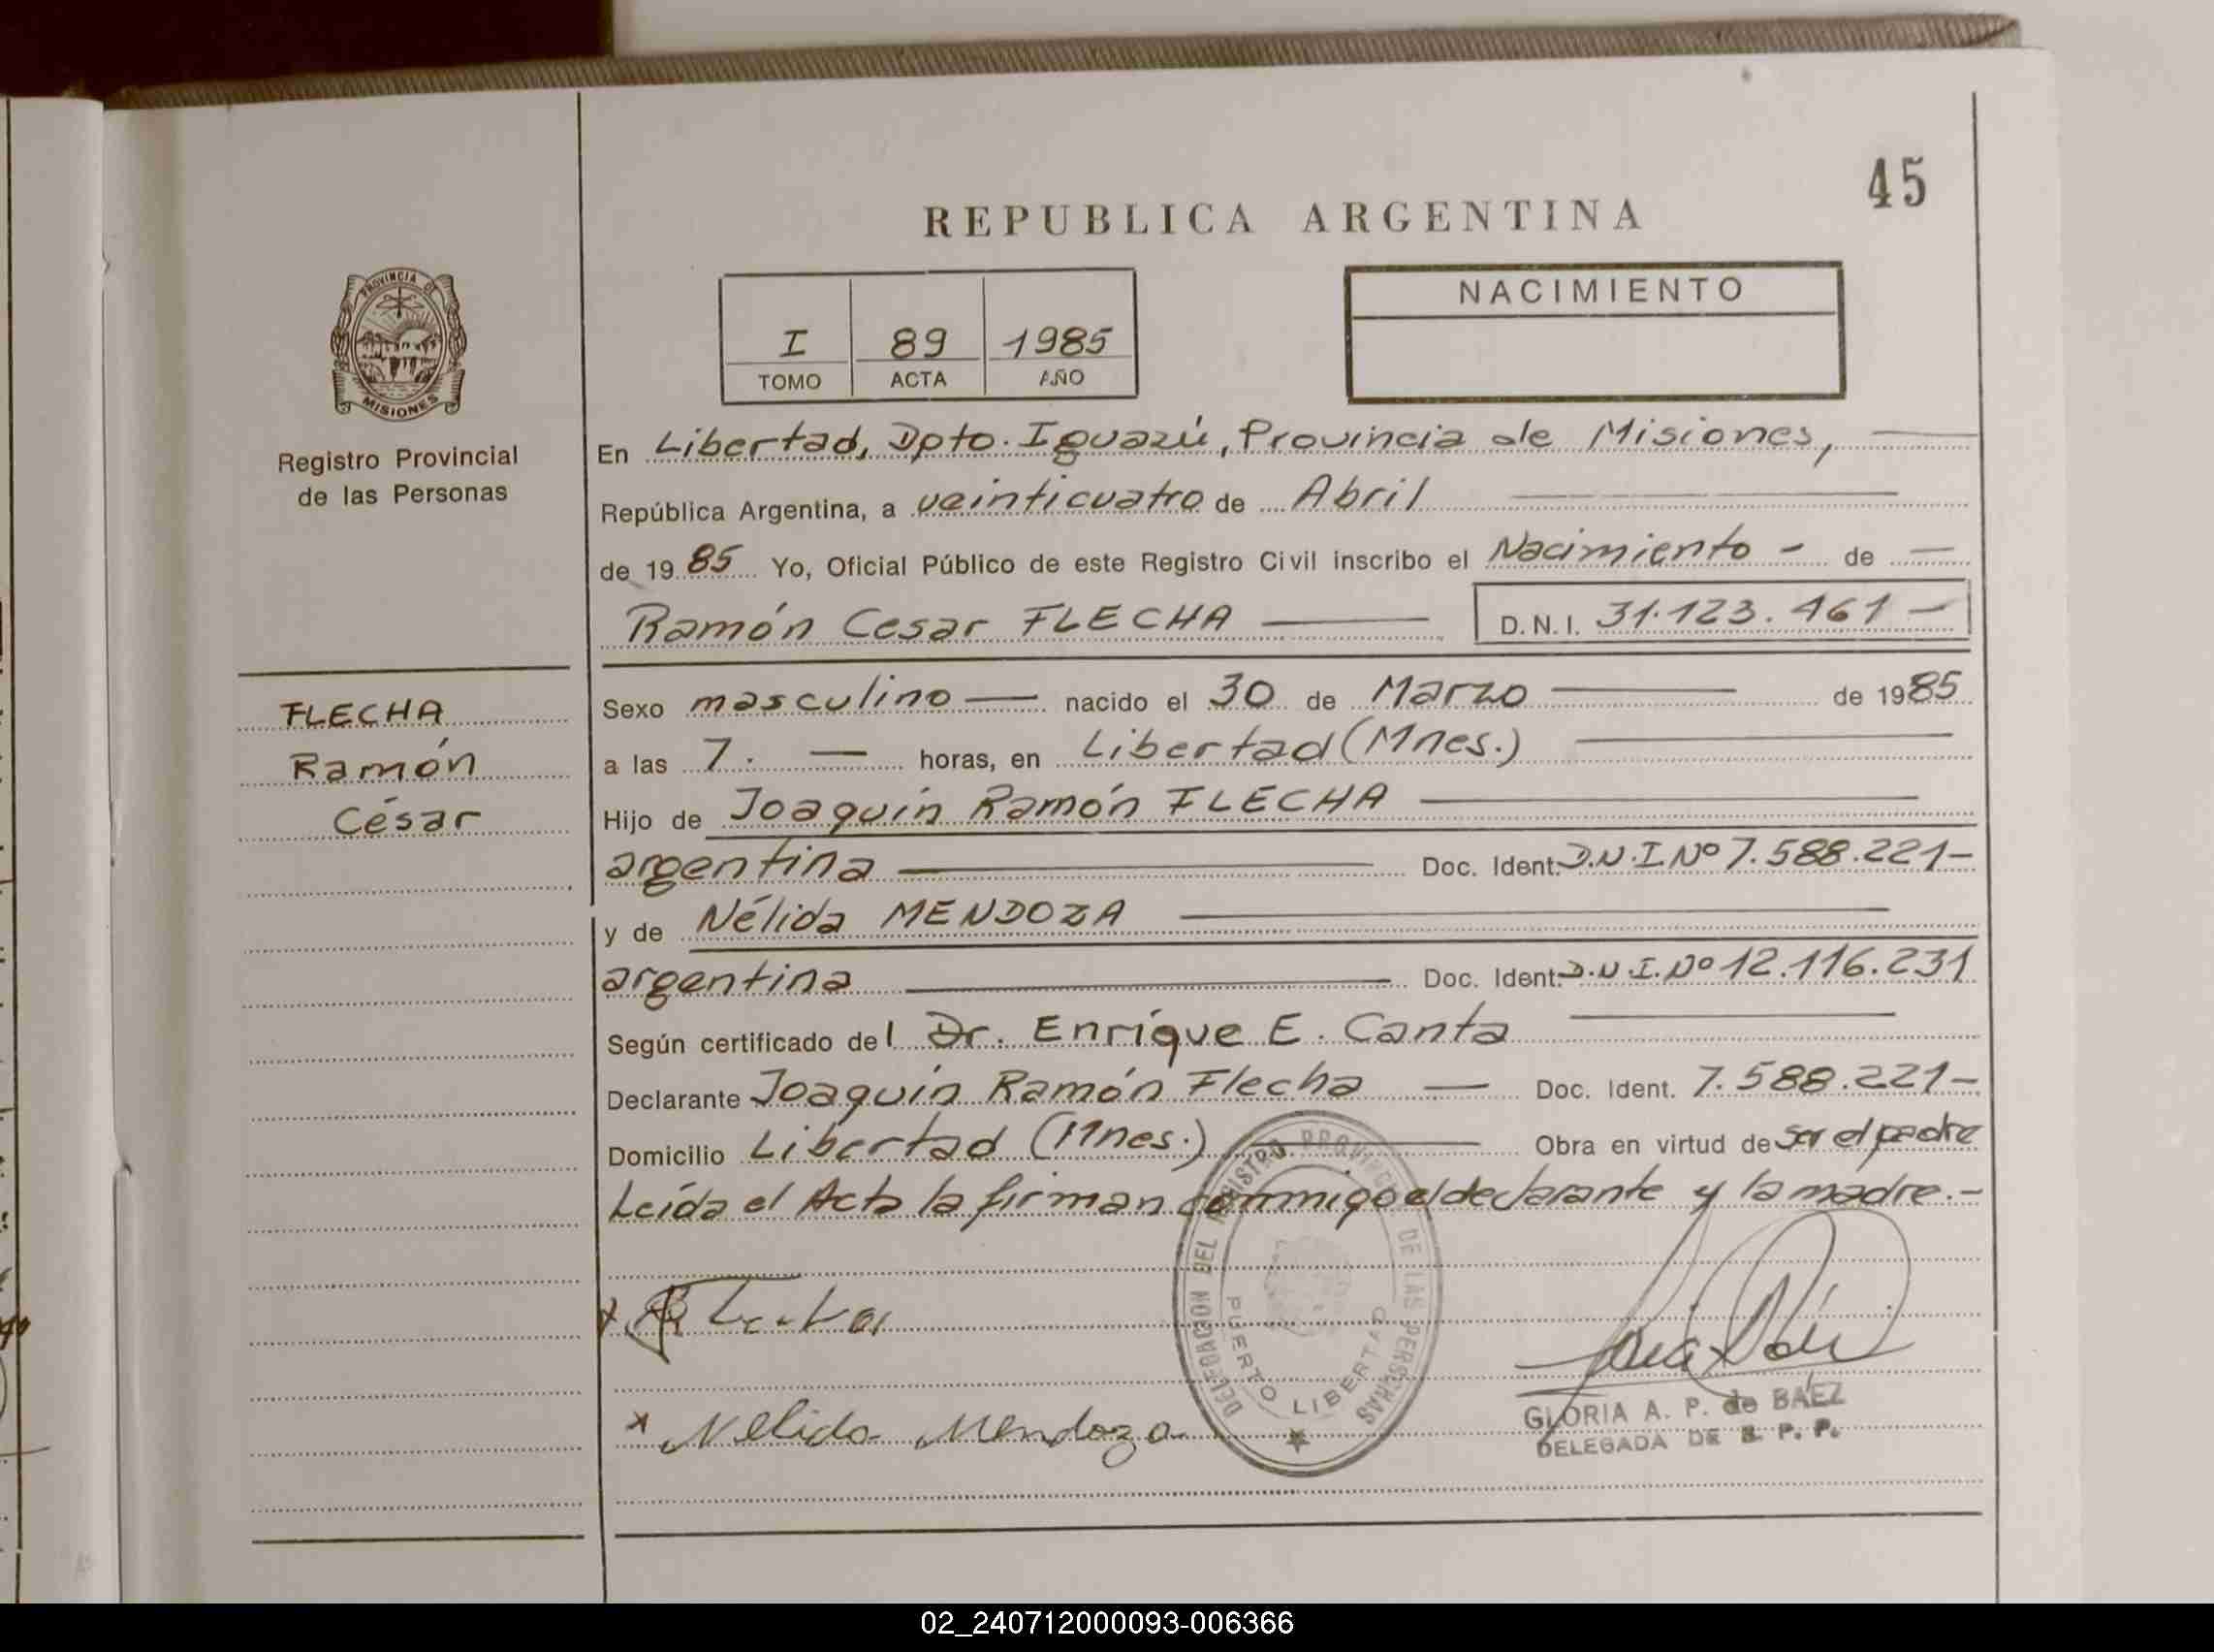 45
REPUBLICA ARGENTINA
PROVINCIA DE
MISIONES
Registro Provincial
de las Personas
I 89 1985
TOMO ACTA AÑO
NACIMIENTO
En Libertad, Dpto. Iguazú, Provincia de Misiones,
República Argentina, a veinticuatro de Abril
de 1985 Yo, Oficial Público de este Registro Civil inscribo el Nacimiento - de
Ramón Cesar FLECHA D.N.I. 31.123.461
FLECHA
Ramón
César
Sexo masculino nacido el 30 de Marzo de 1985
a las 7. horas, en Libertad (Mnes.)
Hijo de Joaquín Ramón FLECHA
argentina Doc. Ident. D.N.I. Nº 7.588.221-
y de Nélida MENDOZA
argentina Doc. Ident. D.N.I. Nº 12.116.231
Según certificado del Dr. Enríque E. Canta
Declarante Joaquín Ramón Flecha Doc. Ident. 7.588.221-
Domicilio Libertad (Mnes.) Obra en virtud de ser el padre
Leída el Acta la firman conmigo el declarante y la madre.-
DELEGACION DEL REGISTRO PROVINCIAL DE LAS PERSONAS
PUERTO LIBERTAD
Nelida Mendoza
GLORIA A. P. de BAEZ
DELEGADA DE R. P. P.
02_240712000093-006366